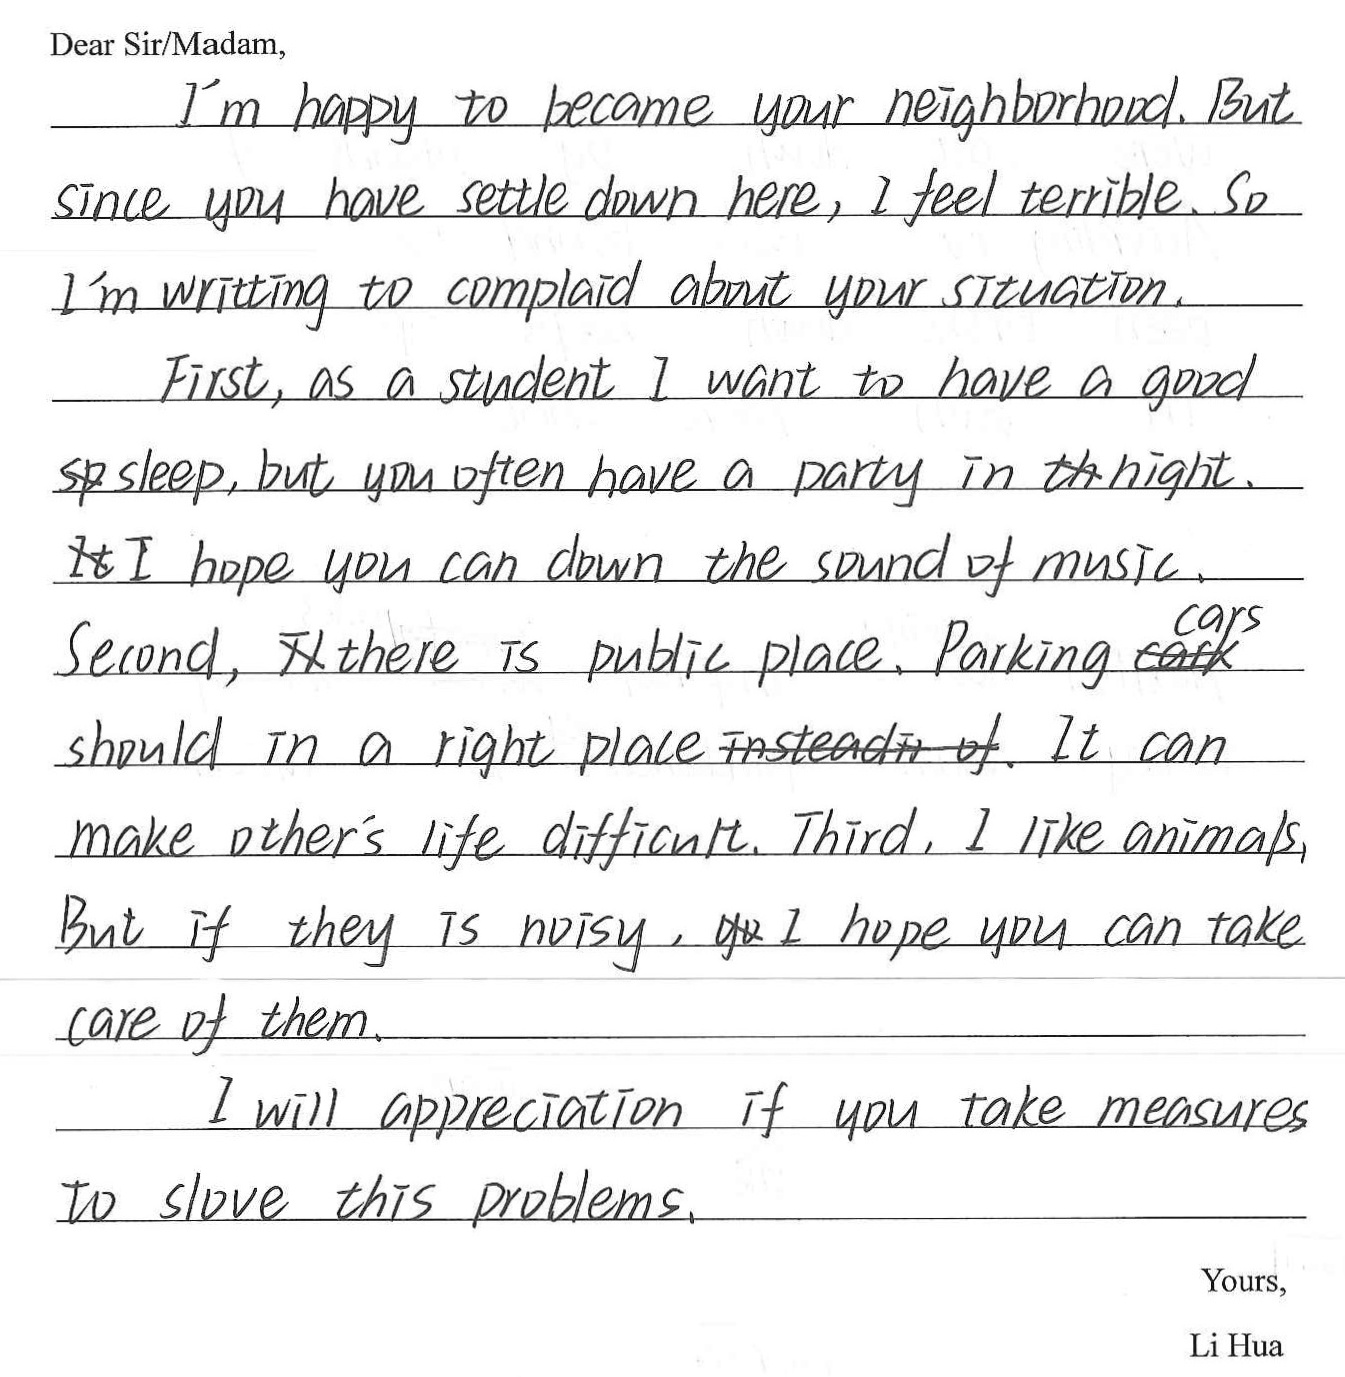 Dear Sir/Madam,
I'm happy to became your neighborhood. But
since you have settle down here, I feel terrible. So
I'm writting to complaid about your situation.
First, as a student I want to have a good
sp sleep, but you often have a party in th night.
It I hope you can down the sound of music.
Second, there is public place. Parking cark cars
should in a right place insteadin of. It can
make other's life difficult. Third, I like animals,
But if they is noisy, yo I hope you can take
care of them.
I will appreciation if you take measures
to slove this problems.
Yours,
Li Hua